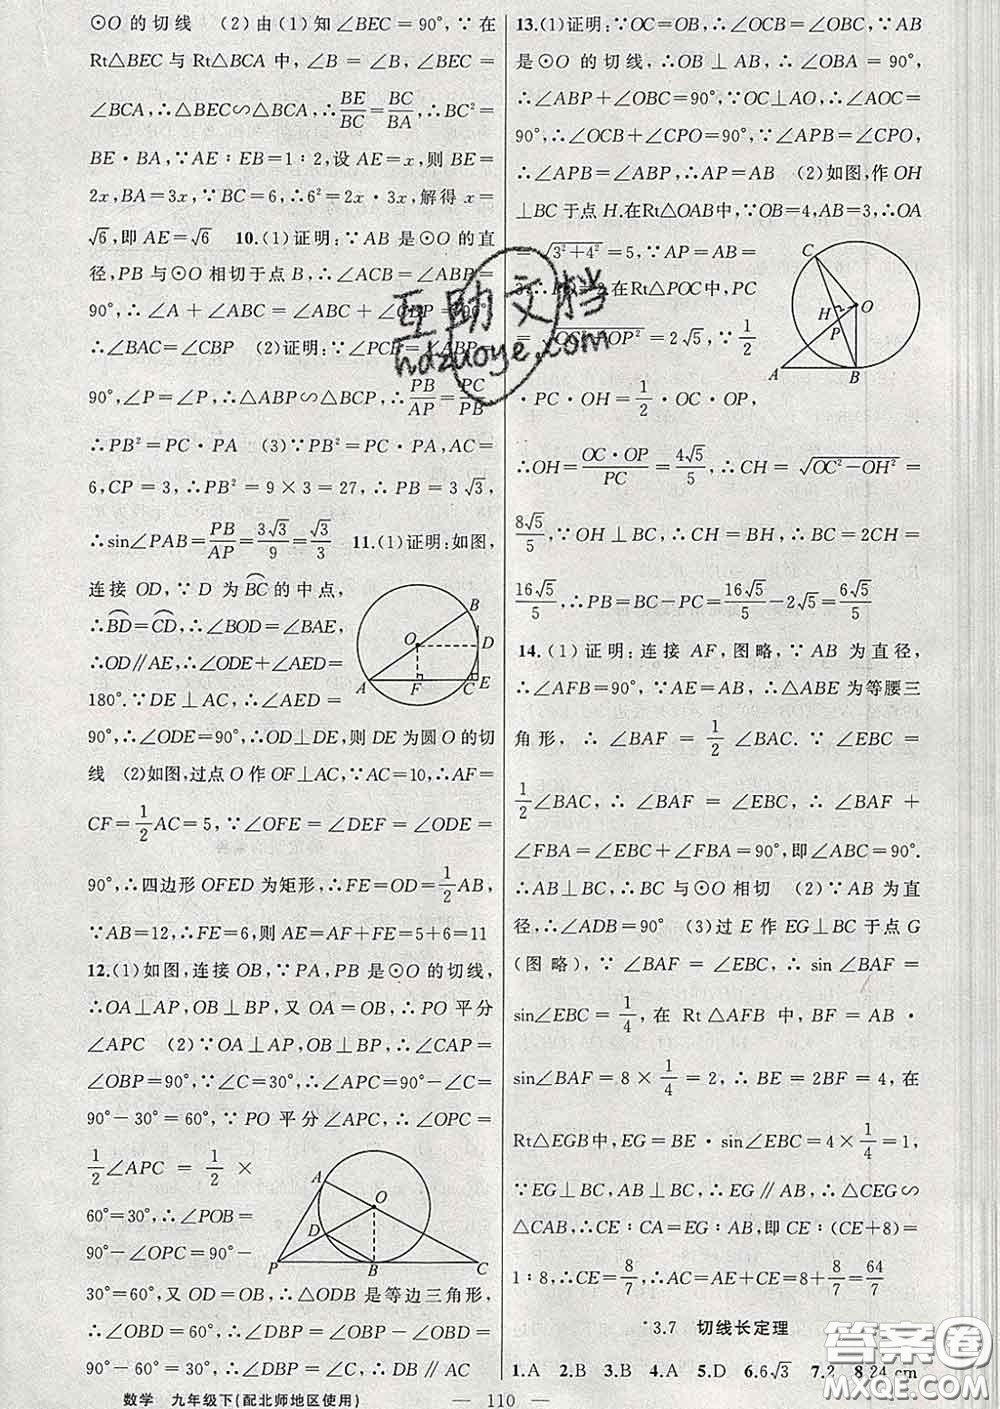 ⊙O 的切线　(2)由(1)知∠BEC=90°,∵在
Rt△BEC与Rt△BCA中,∠B=∠B,∠BEC=
∠BCA,∴△BEC∽△BCA,∴BE/BC=BC/BA,∴BC²=
BE·BA,∵AE∶EB=1∶2,设AE=x,则BE=
2x,BA=3x,∵BC=6,∴6²=2x·3x,解得x=
√6,即AE=√6　10.(1)证明:∵AB是⊙O的直
径,PB与⊙O相切于点B,∴∠ACB=∠ABP=
90°,∴∠A+∠ABC=∠ABC+∠CBP=90°,
∴∠BAC=∠CBP　(2)证明:∵∠PCB=∠ABP=
90°,∠P=∠P,∴△ABP∽△BCP,∴PB/AP=PC/PB
∴PB²=PC·PA　(3)∵PB²=PC·PA,AC=
6,CP=3,∴PB²=9×3=27,∴PB=3√3,
∴sin∠PAB=PB/AP=3√3/9=√3/3　11.(1)证明:如图,
连接OD,∵D为BC的中点,
∴BD=CD,∴∠BOD=∠BAE,
∴OD∥AE,∴∠ODE+∠AED=
180°.∵DE⊥AC,∴∠AED=
90°,∴∠ODE=90°,∴OD⊥DE,则DE为圆O的切
线　(2)如图,过点O作OF⊥AC,∵AC=10,∴AF=
CF=1/2AC=5,∵∠OFE=∠DEF=∠ODE=
90°,∴四边形OFED为矩形,∴FE=OD=1/2AB,
∵AB=12,∴FE=6,则AE=AF+FE=5+6=11
12.(1)如图,连接OB,∵PA,PB是⊙O的切线,
∴OA⊥AP,OB⊥BP,又OA=OB,∴PO平分
∠APC　(2)∵OA⊥AP,OB⊥BP,∴∠CAP=
∠OBP=90°,∵∠C=30°,∴∠APC=90°-∠C=
90°-30°=60°,∵PO平分∠APC,∴∠OPC=
1/2∠APC=1/2×
60°=30°,∴∠POB=
90°-∠OPC=90°-
30°=60°,又OD=OB,∴△ODB是等边三角形,
∴∠OBD=60°,∴∠DBP=∠OBP-∠OBD=
90°-60°=30°,∴∠DBP=∠C,∴DB∥AC
B
O
D
A
F
C
E
A
O
D
P
B
C
13.(1)证明:∵OC=OB,∴∠OCB=∠OBC,∵AB
是⊙O的切线,∴OB⊥AB,∴∠OBA=90°,
∴∠ABP+∠OBC=90°,∵OC⊥AO,∴∠AOC=
90°,∴∠OCB+∠CPO=90°,∵∠APB=∠CPO,
∴∠APB=∠ABP,∴AP=AB　(2)如图,作OH
⊥BC于点H.在Rt△OAB中,∵OB=4,AB=3,∴OA
=√(3²+4²)=5,∵AP=AB=
3,∴PO=2.在Rt△POC中,PC
=√(OC²+OP²)=2√5,∵1/2
·PC·OH=1/2·OC·OP,
∴OH=OC·OP/PC=4√5/5,∴CH=√(OC²-OH²)=
8√5/5,∵OH⊥BC,∴CH=BH,∴BC=2CH=
16√5/5,∴PB=BC-PC=16√5/5-2√5=6√5/5
C
O
H
P
A
B
14.(1)证明:连接AF,图略,∵AB为直径,
∴∠AFB=90°,∵AE=AB,∴△ABE为等腰三
角形,∴∠BAF=1/2∠BAC.∵∠EBC=
1/2∠BAC,∴∠BAF=∠EBC,∴∠BAF+
∠FBA=∠EBC+∠FBA=90°,即∠ABC=90°.
∴AB⊥BC,∴BC与⊙O相切　(2)∵AB为直
径,∴∠ADB=90°　(3)过E作EG⊥BC于点G
(图略),∵∠BAF=∠EBC,∴sin∠BAF=
sin∠EBC=1/4,在Rt△AFB中,BF=AB·
sin∠BAF=8×1/4=2,∴BE=2BF=4,在
Rt△EGB中,EG=BE·sin∠EBC=4×1/4=1,
∵EG⊥BC,AB⊥BC,∴EG∥AB,∴△CEG∽
△CAB,∴CE∶CA=EG∶AB,即CE∶(CE+8)=
1∶8,∴CE=8/7,∴AC=AE+CE=8+8/7=64/7
3.7　切线长定理
1.A　2.B　3.B　4.A　5.D　6.6√3　7.2　8.24 cm
数学　九年级下(配北师地区使用)　— 110 —
互助文档
hdzuoye.com
答案圈
MXQE.COM